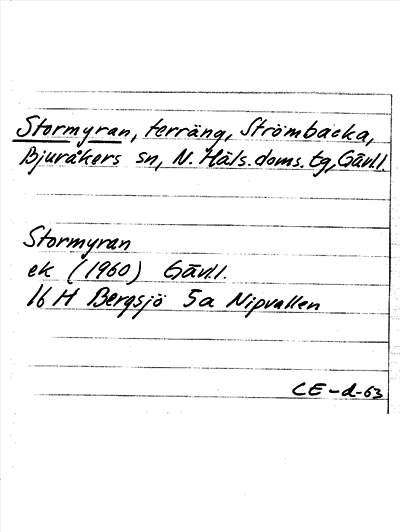 Stormyran, terräng, Strömbacka,
Bjuråkers sn, N. Häls. doms. tg, Gävl.
Stormyran
ek (1960) Gävl.
16 H Bergsjö 5a Nipvallen
CE-d-63